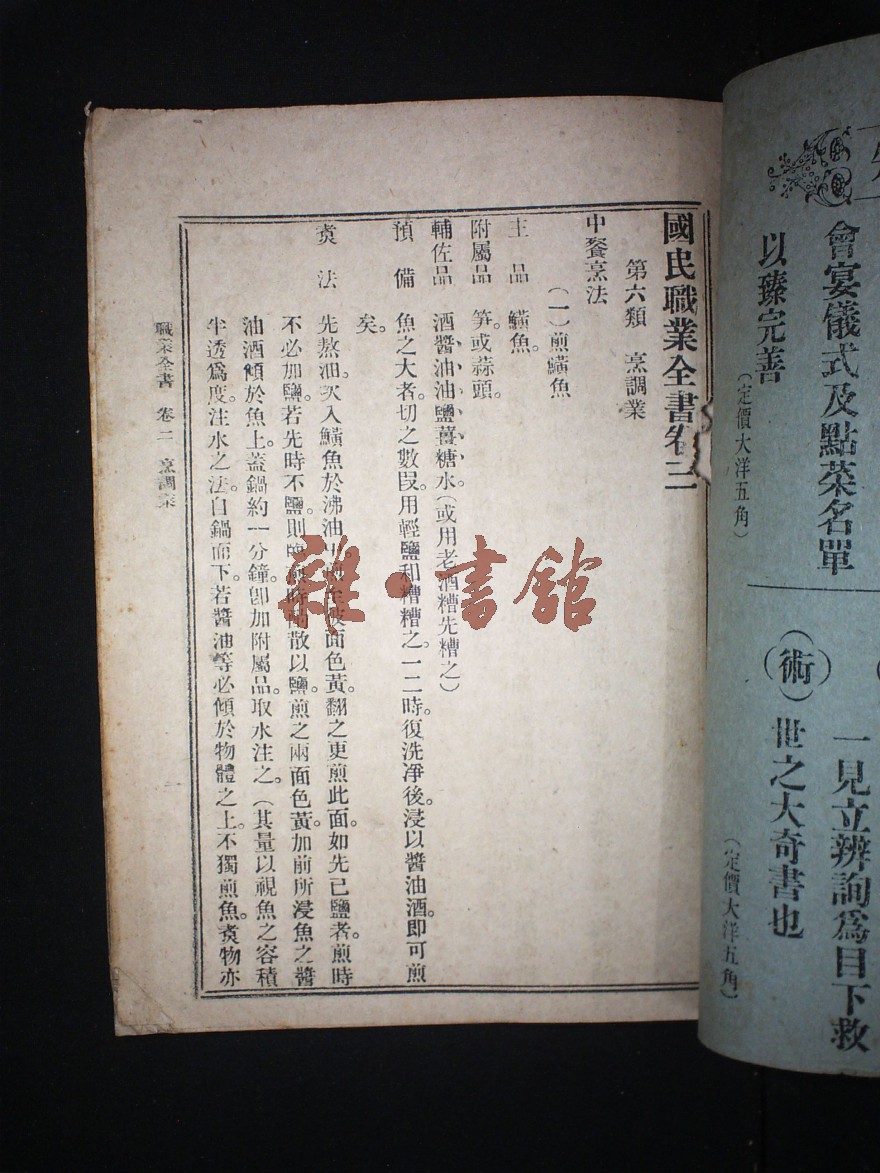 會宴儀式及點菜名單
以臻完善
(定價大洋五角)
一見立辨詢爲目下救
(術)世之大奇書也
(定價大洋五角)
國民職業全書卷二
第六類 烹調業
中餐烹法
(一)煎鱑魚
主品 鱑魚。
附屬品 笋。或蒜頭。
輔佐品 酒、醬油、油、鹽、薑、糖、水、(或用老酒糟先糟之)
預備 魚之大者。切之數段。用輕鹽和糟糟之。一二時。復洗净後。浸以醬油酒。即可煎
矣。
煑法 先熬油。次入鱑魚於沸油 面色黃。翻之更煎此面。如先已鹽者。煎時
不必加鹽。若先時不鹽。則 時 散以鹽。煎之兩面色黃。加前所浸魚之醬
油酒傾於魚上。蓋鍋約一分鐘。卽加附屬品。取水注之。(其量以視魚之容積
半透爲度。注水之法。自鍋面下。若醬油等必傾於物體之上。不獨煎魚。煑物亦
職業全書 卷二 烹調業
一
雜·書館